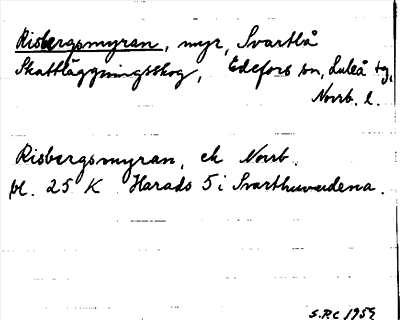 Risbergsmyran, myr, Svartlå
Skattläggningsskog, Edefors sn, Luleå tg,
Norrb. l.
Risbergsmyran, ek Norrb.
bl. 25 K Harads 5 i Svarthuvudena.
S.P.C 1959